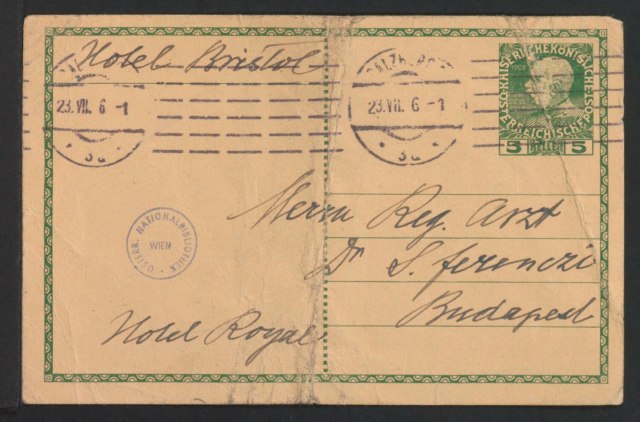 Hotel Bristol
SALZBURG
23.VII. 6-1
* 3a *
23.VII. 6-1
* 3a *
KAISERLICHE KÖNIGLICHE
ÖSTERREICHISCHE
1908
5 HELLER 5
ÖSTERR. NATIONALBIBLIOTHEK
WIEN
Herrn Reg. Arzt
Dr S. Ferenczi
Budapest
Hotel Royal